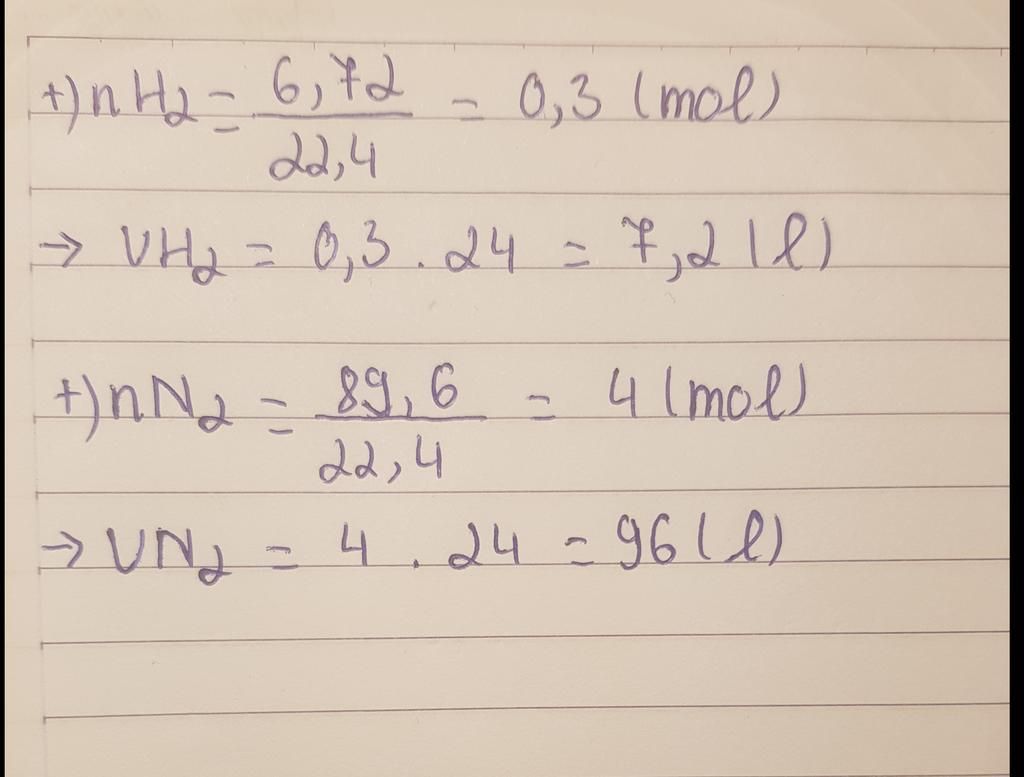 +) nH2 = 6,72 / 22,4 = 0,3 (mol)
→ VH2 = 0,3 . 24 = 7,2 (l)
+) nN2 = 89,6 / 22,4 = 4 (mol)
→ VN2 = 4 . 24 = 96 (l)